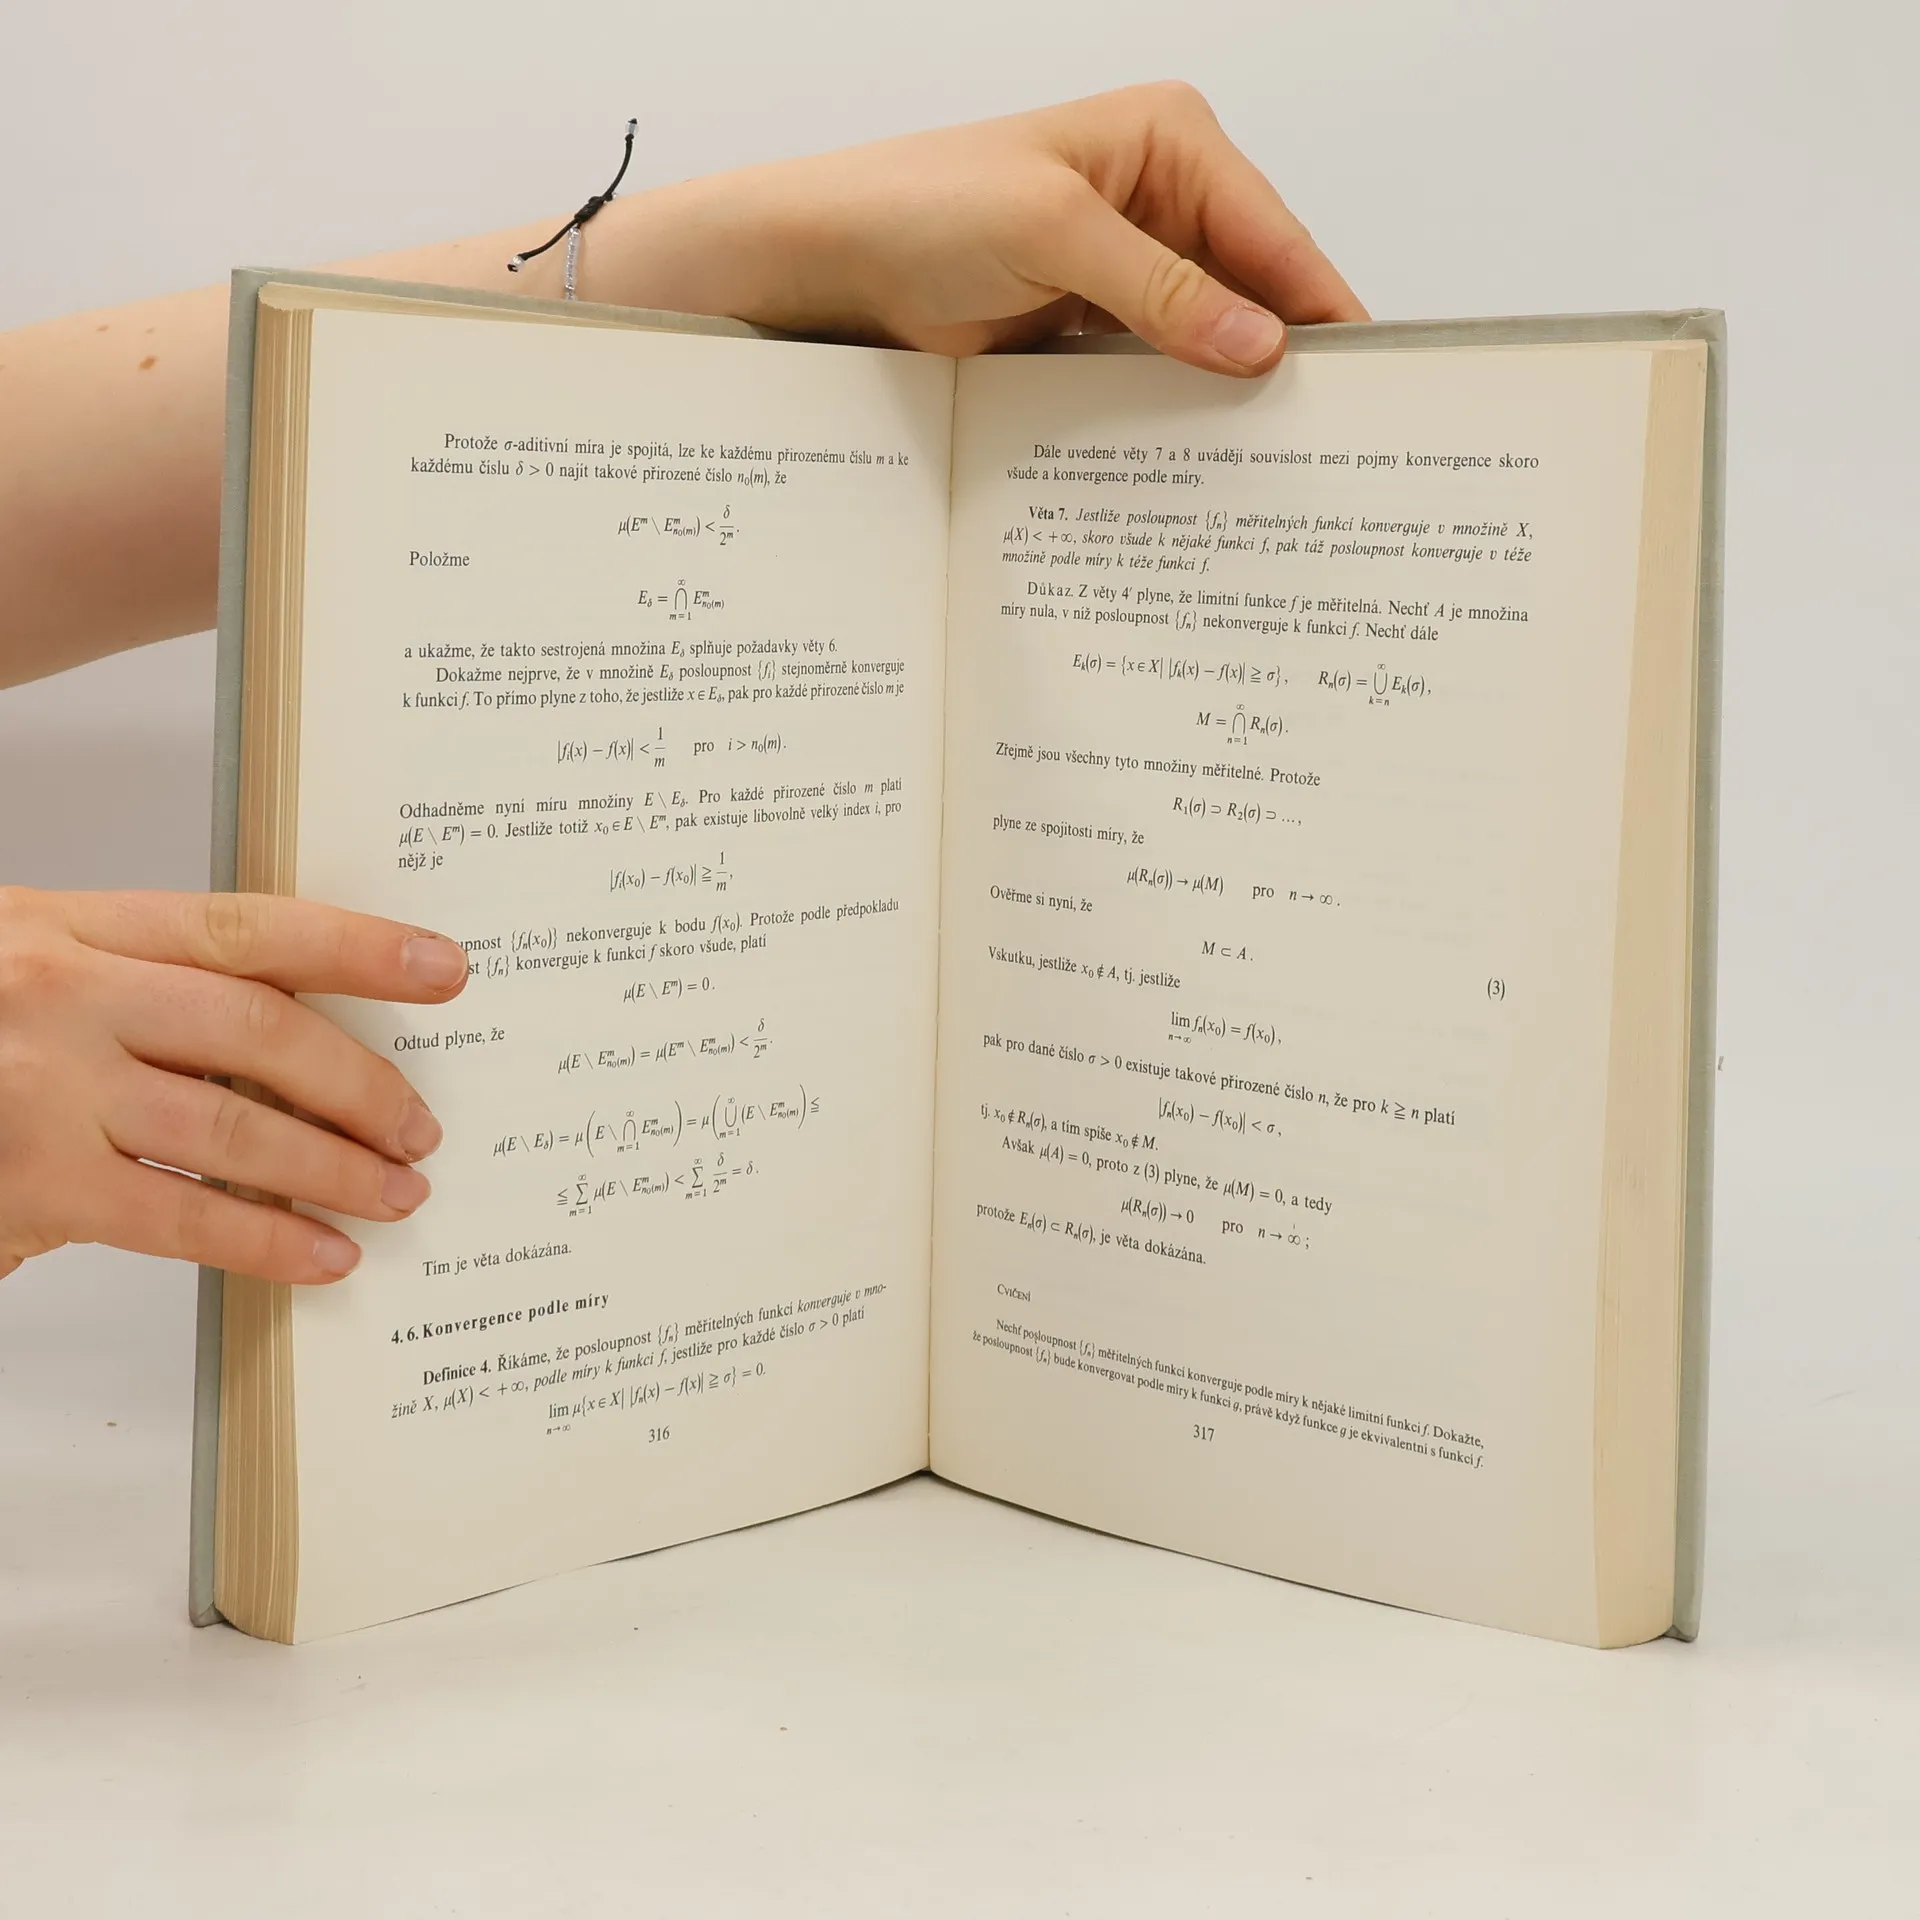 Protože σ-aditivní míra je spojitá, lze ke každému přirozenému číslu m a ke
každému číslu δ > 0 najít takové přirozené číslo n₀(m), že
μ(Eᵐ \ Eᵐₙ₀₍ₘ₎) < δ/2ᵐ.
Položme
E_δ = ⋂_{m=1}^{∞} Eᵐₙ₀₍ₘ₎
a ukažme, že takto sestrojená množina E_δ splňuje požadavky věty 6.
Dokažme nejprve, že v množině E_δ posloupnost {fᵢ} stejnoměrně konverguje
k funkci f. To přímo plyne z toho, že jestliže x ∈ E_δ, pak pro každé přirozené číslo m je
|fᵢ(x) − f(x)| < 1/m pro i > n₀(m).
Odhadněme nyní míru množiny E \ E_δ. Pro každé přirozené číslo m platí
μ(E \ Eᵐ) = 0. Jestliže totiž x₀ ∈ E \ Eᵐ, pak existuje libovolně velký index i, pro
nějž je
|fᵢ(x₀) − f(x₀)| ≧ 1/m,
upnost {fₙ(x₀)} nekonverguje k bodu f(x₀). Protože podle předpokladu
st {fₙ} konverguje k funkci f skoro všude, platí
μ(E \ Eᵐ) = 0.
Odtud plyne, že
μ(E \ Eᵐₙ₀₍ₘ₎) = μ(Eᵐ \ Eᵐₙ₀₍ₘ₎) < δ/2ᵐ.
μ(E \ E_δ) = μ(E \ ⋂_{m=1}^{∞} Eᵐₙ₀₍ₘ₎) = μ(⋃_{m=1}^{∞} (E \ Eᵐₙ₀₍ₘ₎)) ≦
≦ ∑_{m=1}^{∞} μ(E \ Eᵐₙ₀₍ₘ₎) < ∑_{m=1}^{∞} δ/2ᵐ = δ.
Tím je věta dokázána.
4.6. Konvergence podle míry
Definice 4. Říkáme, že posloupnost {fₙ} měřitelných funkcí konverguje v mno-
žině X, μ(X) < +∞, podle míry k funkci f, jestliže pro každé číslo σ > 0 platí
lim_{n→∞} μ{x ∈ X| |fₙ(x) − f(x)| ≧ σ} = 0.
316
Dále uvedené věty 7 a 8 uvádějí souvislost mezi pojmy konvergence skoro
všude a konvergence podle míry.
Věta 7. Jestliže posloupnost {fₙ} měřitelných funkcí konverguje v množině X,
μ(X) < +∞, skoro všude k nějaké funkci f, pak táž posloupnost konverguje v téže
množině podle míry k téže funkci f.
Důkaz. Z věty 4′ plyne, že limitní funkce f je měřitelná. Nechť A je množina
míry nula, v níž posloupnost {fₙ} nekonverguje k funkci f. Nechť dále
Eₖ(σ) = {x ∈ X| |fₖ(x) − f(x)| ≧ σ}, Rₙ(σ) = ⋃_{k=n}^{∞} Eₖ(σ),
M = ⋂_{n=1}^{∞} Rₙ(σ).
Zřejmě jsou všechny tyto množiny měřitelné. Protože
R₁(σ) ⊃ R₂(σ) ⊃ ...,
plyne ze spojitosti míry, že
μ(Rₙ(σ)) → μ(M) pro n → ∞.
Ověřme si nyní, že
M ⊂ A. (3)
Vskutku, jestliže x₀ ∉ A, tj. jestliže
lim_{n→∞} fₙ(x₀) = f(x₀),
pak pro dané číslo σ > 0 existuje takové přirozené číslo n, že pro k ≧ n platí
|fₙ(x₀) − f(x₀)| < σ,
tj. x₀ ∉ Rₙ(σ), a tím spíše x₀ ∉ M.
Avšak μ(A) = 0, proto z (3) plyne, že μ(M) = 0, a tedy
μ(Rₙ(σ)) → 0 pro n → ∞;
protože Eₙ(σ) ⊂ Rₙ(σ), je věta dokázána.
CVIČENÍ
Nechť posloupnost {fₙ} měřitelných funkcí konverguje podle míry k nějaké limitní funkci f. Dokažte,
že posloupnost {fₙ} bude konvergovat podle míry k funkci g, právě když funkce g je ekvivalentní s funkcí f.
317